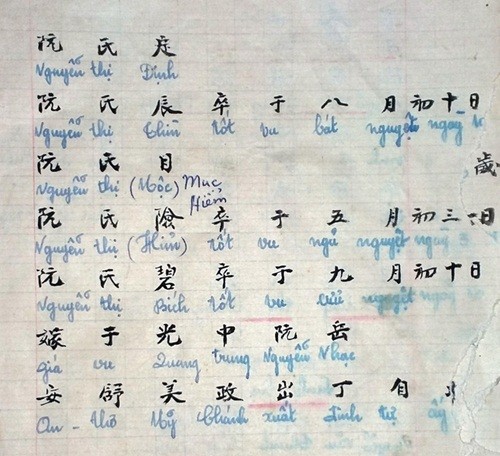 阮氏定
Nguyễn thị Định
阮氏辰卒于八月初十日
Nguyễn thị Thìn tốt vu bát nguyệt ngày
阮氏目 歲
Nguyễn thị (Mộc) Mục
阮氏險卒于五月初三日
Hiểm
Nguyễn thị (Hiển) tốt vu ngũ nguyệt ngày 3
阮氏碧卒于九月初十日
Nguyễn thị Bích tốt vu cửu nguyệt ngày
嫁于光中阮岳
giá vu Quang trung Nguyễn Nhạc
安舒美政出丁自
An thơ Mỹ Chánh xuất đinh tự ấy